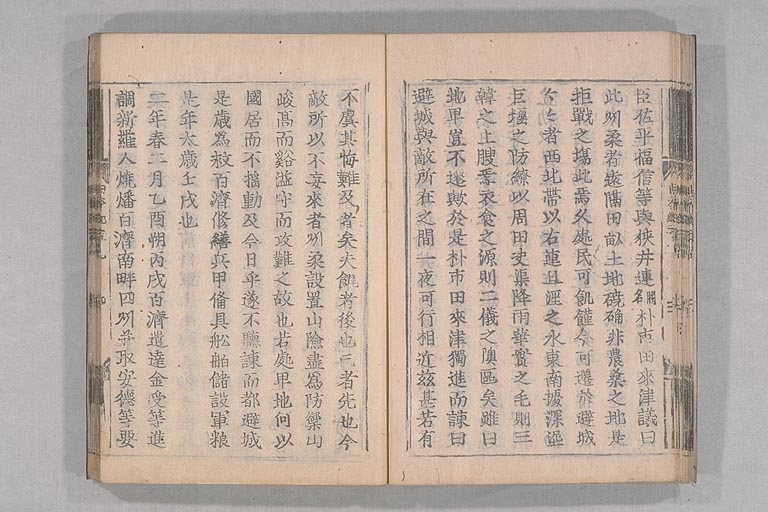 臣佐平福信等與狹井連闕名朴市田來津議曰
此州柔者遠隔田畝土地磽确非農桑之地是
拒戰之場此焉久處民可飢饉今可遷於避城
者西北帶以古連旦涇之水東南據深泥
巨堰之防繚以周田決渠降雨華實之毛則三
韓之上腴焉衣食之源則二儀之隩區矣雖曰
地卑豈不遷歟於是朴市田來津獨進而諫曰
避城與敵所在之間一夜可行相近玆甚若有
不虞其悔難及者矣夫飢者後也亡者先也今
敵所以不妄來者州柔設置山險盡爲防禦山
峻高而谿溢守而攻難之故也若處卑地何以
國居而不搖動及今日乎遂不聽諫而都避城
是歲爲救百濟修繕兵甲備具舩舶儲設軍粮
是年太歲壬戌也
二年春二月乙酉朔丙戌百濟遣達金受等進
調新羅人燒燔百濟南畔四州幷取安德等要